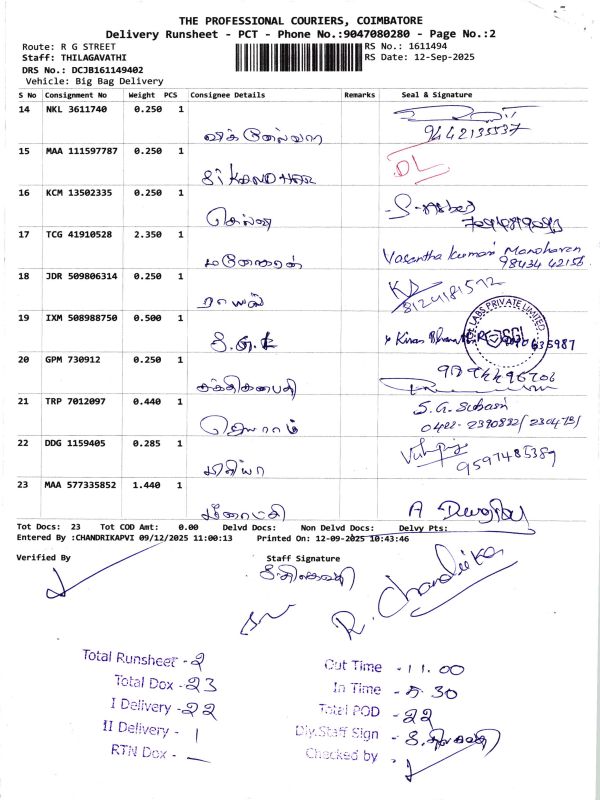 THE PROFESSIONAL COURIERS, COIMBATORE
Delivery Runsheet - PCT - Phone No.:9047080280 - Page No.:2
Route: R G STREET
RS No.: 1611494
Staff: THILAGAVATHI
RS Date: 12-Sep-2025
DRS No.: DCJB161149402
Vehicle: Big Bag Delivery
S No Consignment No Weight PCS Consignee Details Remarks Seal & Signature
14 NKL 3611740 0.250 1
9442135537
15 MAA 111597787 0.250 1
DL
16 KCM 13502335 0.250 1
செல்வி
17 TCG 41910528 2.350 1 Vasantha Kumari Manoharan
மனோகரன் 98434 42156
18 JDR 509806314 0.250 1 KD
ராயல் 8124181572
19 IXM 508988750 0.500 1
LABS PRIVATE LIMITED
20 GPM 730912 0.250 1
சக்திகணபதி
21 TRP 7012097 0.440 1 S.G. Subash
ஜெயராம் 0422-2390832/
22 DDG 1159405 0.285 1
பிரியா 9597485389
23 MAA 577335852 1.440 1
மீனாட்சி A
Tot Docs: 23 Tot COD Amt: 0.00 Delvd Docs: Non Delvd Docs: Delvy Pts:
Entered By :CHANDRIKAPVI 09/12/2025 11:00:13 Printed On: 12-09-2025 10:43:46
Verified By Staff Signature
R. Chandrika
Total Runsheet - 2
Out Time - 11.00
Total Dox - 23
In Time - 5 30
I Delivery - 22
Total POD - 22
II Delivery - 1
Dly.Staff Sign -
RTN Dox -
Checked by -